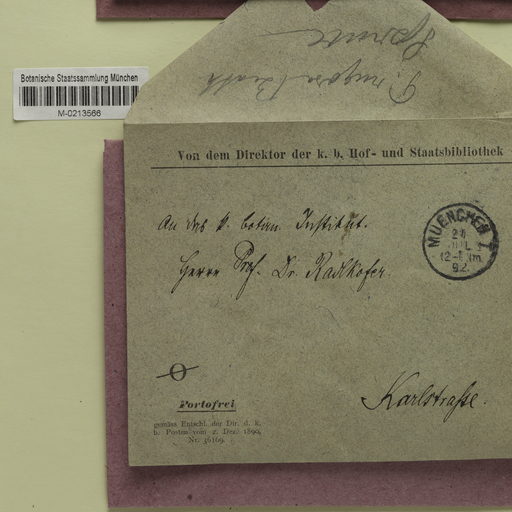 Botanische Staatssammlung München
M-0213566
P. rugosa Benth
Von dem Direktor der k. b. Hof- und Staatsbibliothek
An das k. botan. Institut.
Herrn Prof. Dr. Radlkofer.
MUENCHEN I
24
JUL.
12-1 Nm.
92.
Portofrei
gemäss Entschl. der Dir. d. k.
b. Posten vom 2. Dez. 1890,
Nr. 36169.
Karlstrasse.